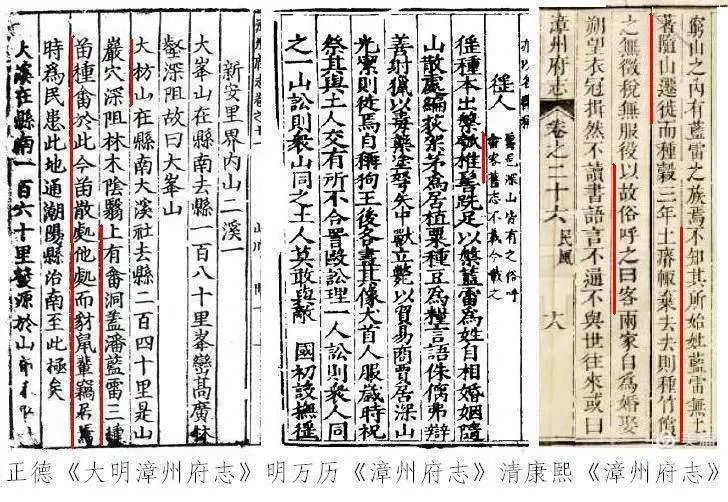 新安里界内山二溪一
大峯山在縣南去縣一百八十里峯巒高廣林
壑深阻故曰大峯山
大枋山在縣南大溪社去縣二百四十里是山
巖穴深阻林木陰翳上有畬洞蓋潘藍雷三種
苗種畬於此今苗散處他處而豺鼠輩竊居焉
時爲民患此地通潮陽縣治南至此極矣
大溪在縣南一百六十里發源於山
猺人
屬邑深山皆有之俗呼
畬客舊志不載今載之
猺種本出槃瓠椎髻跣足以槃藍雷爲姓自相婚姻隨
山散處編荻架茅爲居植粟種豆爲糧言語侏㒧弗辯
善射獵以毒藥塗弩矢中獸立斃以貿易商賈居深山
光潔則徙焉自稱狗王後各畫其像犬首人服歲時祝
祭其與土人交有所不合詈毆訟理一人訟則衆人同
之一山訟則衆山同之土人莫敢與敵 國初設撫猺
窮山之内有藍雷之族焉不知其所始姓藍雷無土
著隨山遷徙而種穀三年土瘠輒棄去去則種竹償
之無徵稅無服役以故俗呼之曰客兩家自爲婚娶
朔望衣冠揖然不讀書語言不通不與世往來或曰
漳州府志 卷之二十六 民風 十八
正德《大明漳州府志》明万历《漳州府志》清康熙《漳州府志》